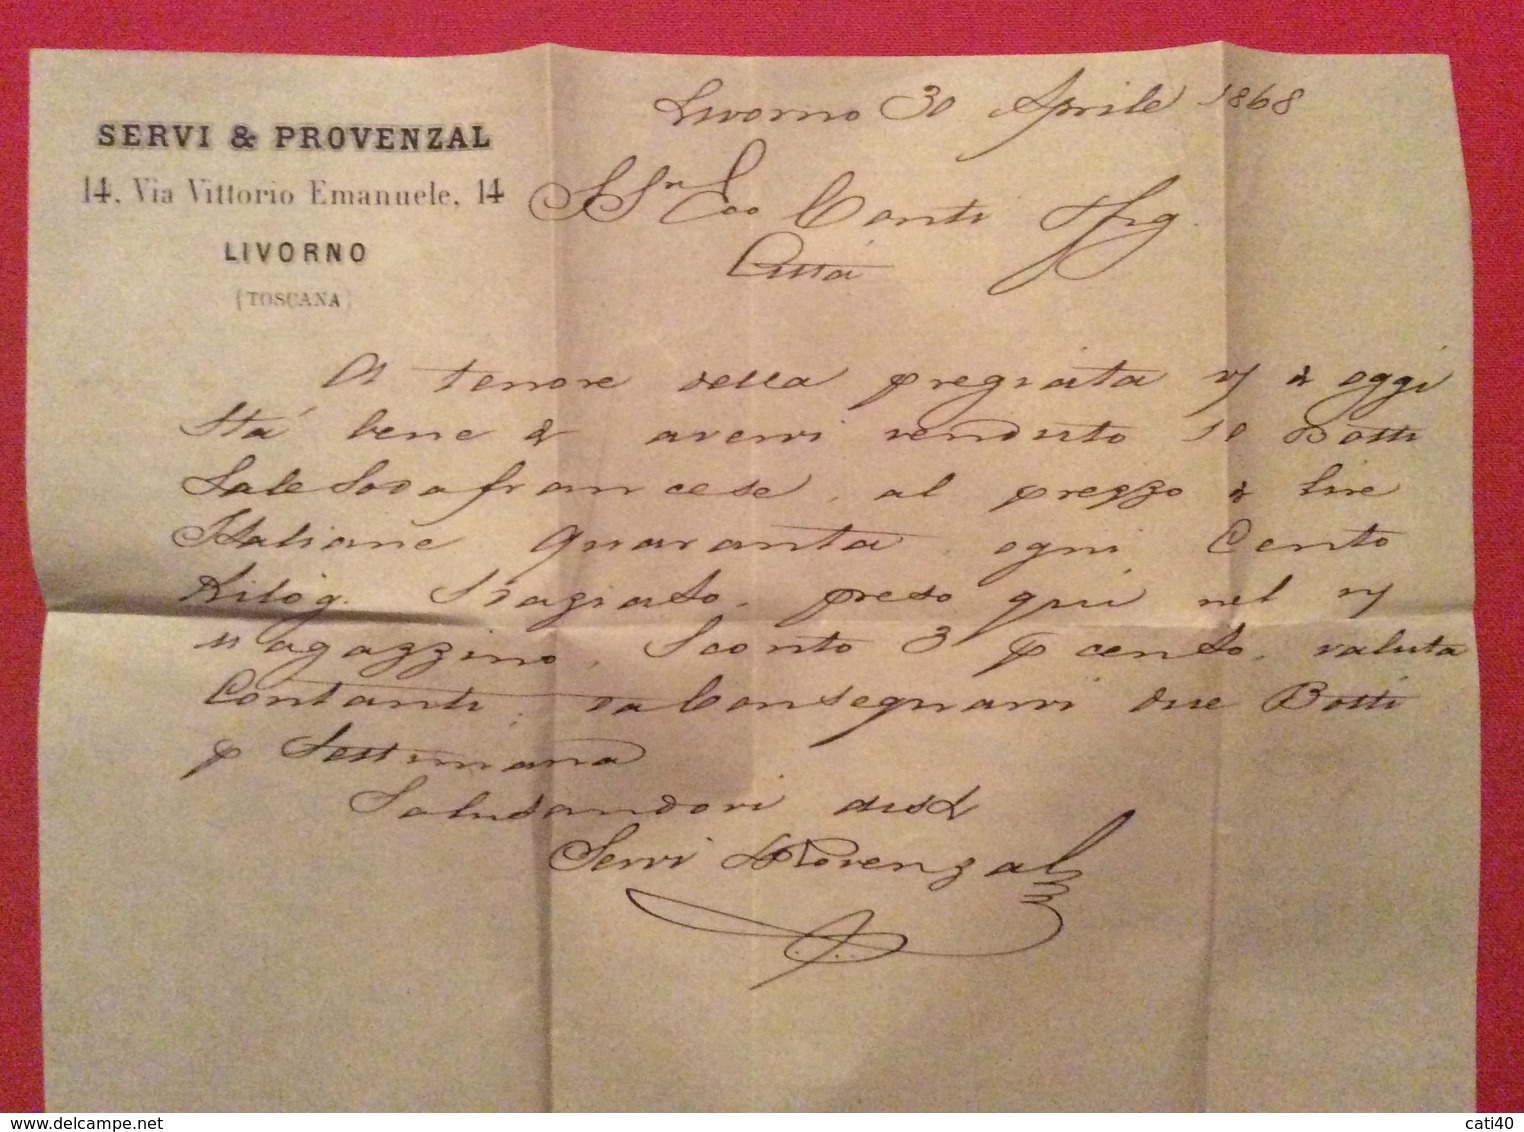 SERVI & PROVENZAL
14, Via Vittorio Emanuele, 14
LIVORNO
(TOSCANA)
Livorno 30 Aprile 1868
SSri Conti
Città
A tenore della pregiata d'oggi
Stà bene d' avervi venduto 10 Botti
Sale Soda francese, al prezzo di Lire
Italiane Quaranta, ogni Cento
Kilog. Stagiato, preso qui nel
Magazzino, Sconto 3 p cento, valuta
Contanti; da Consegnarvi due Botti
p Settimana
Salutandovi
Servi & Provenzal
www.delcampe.net
cati40